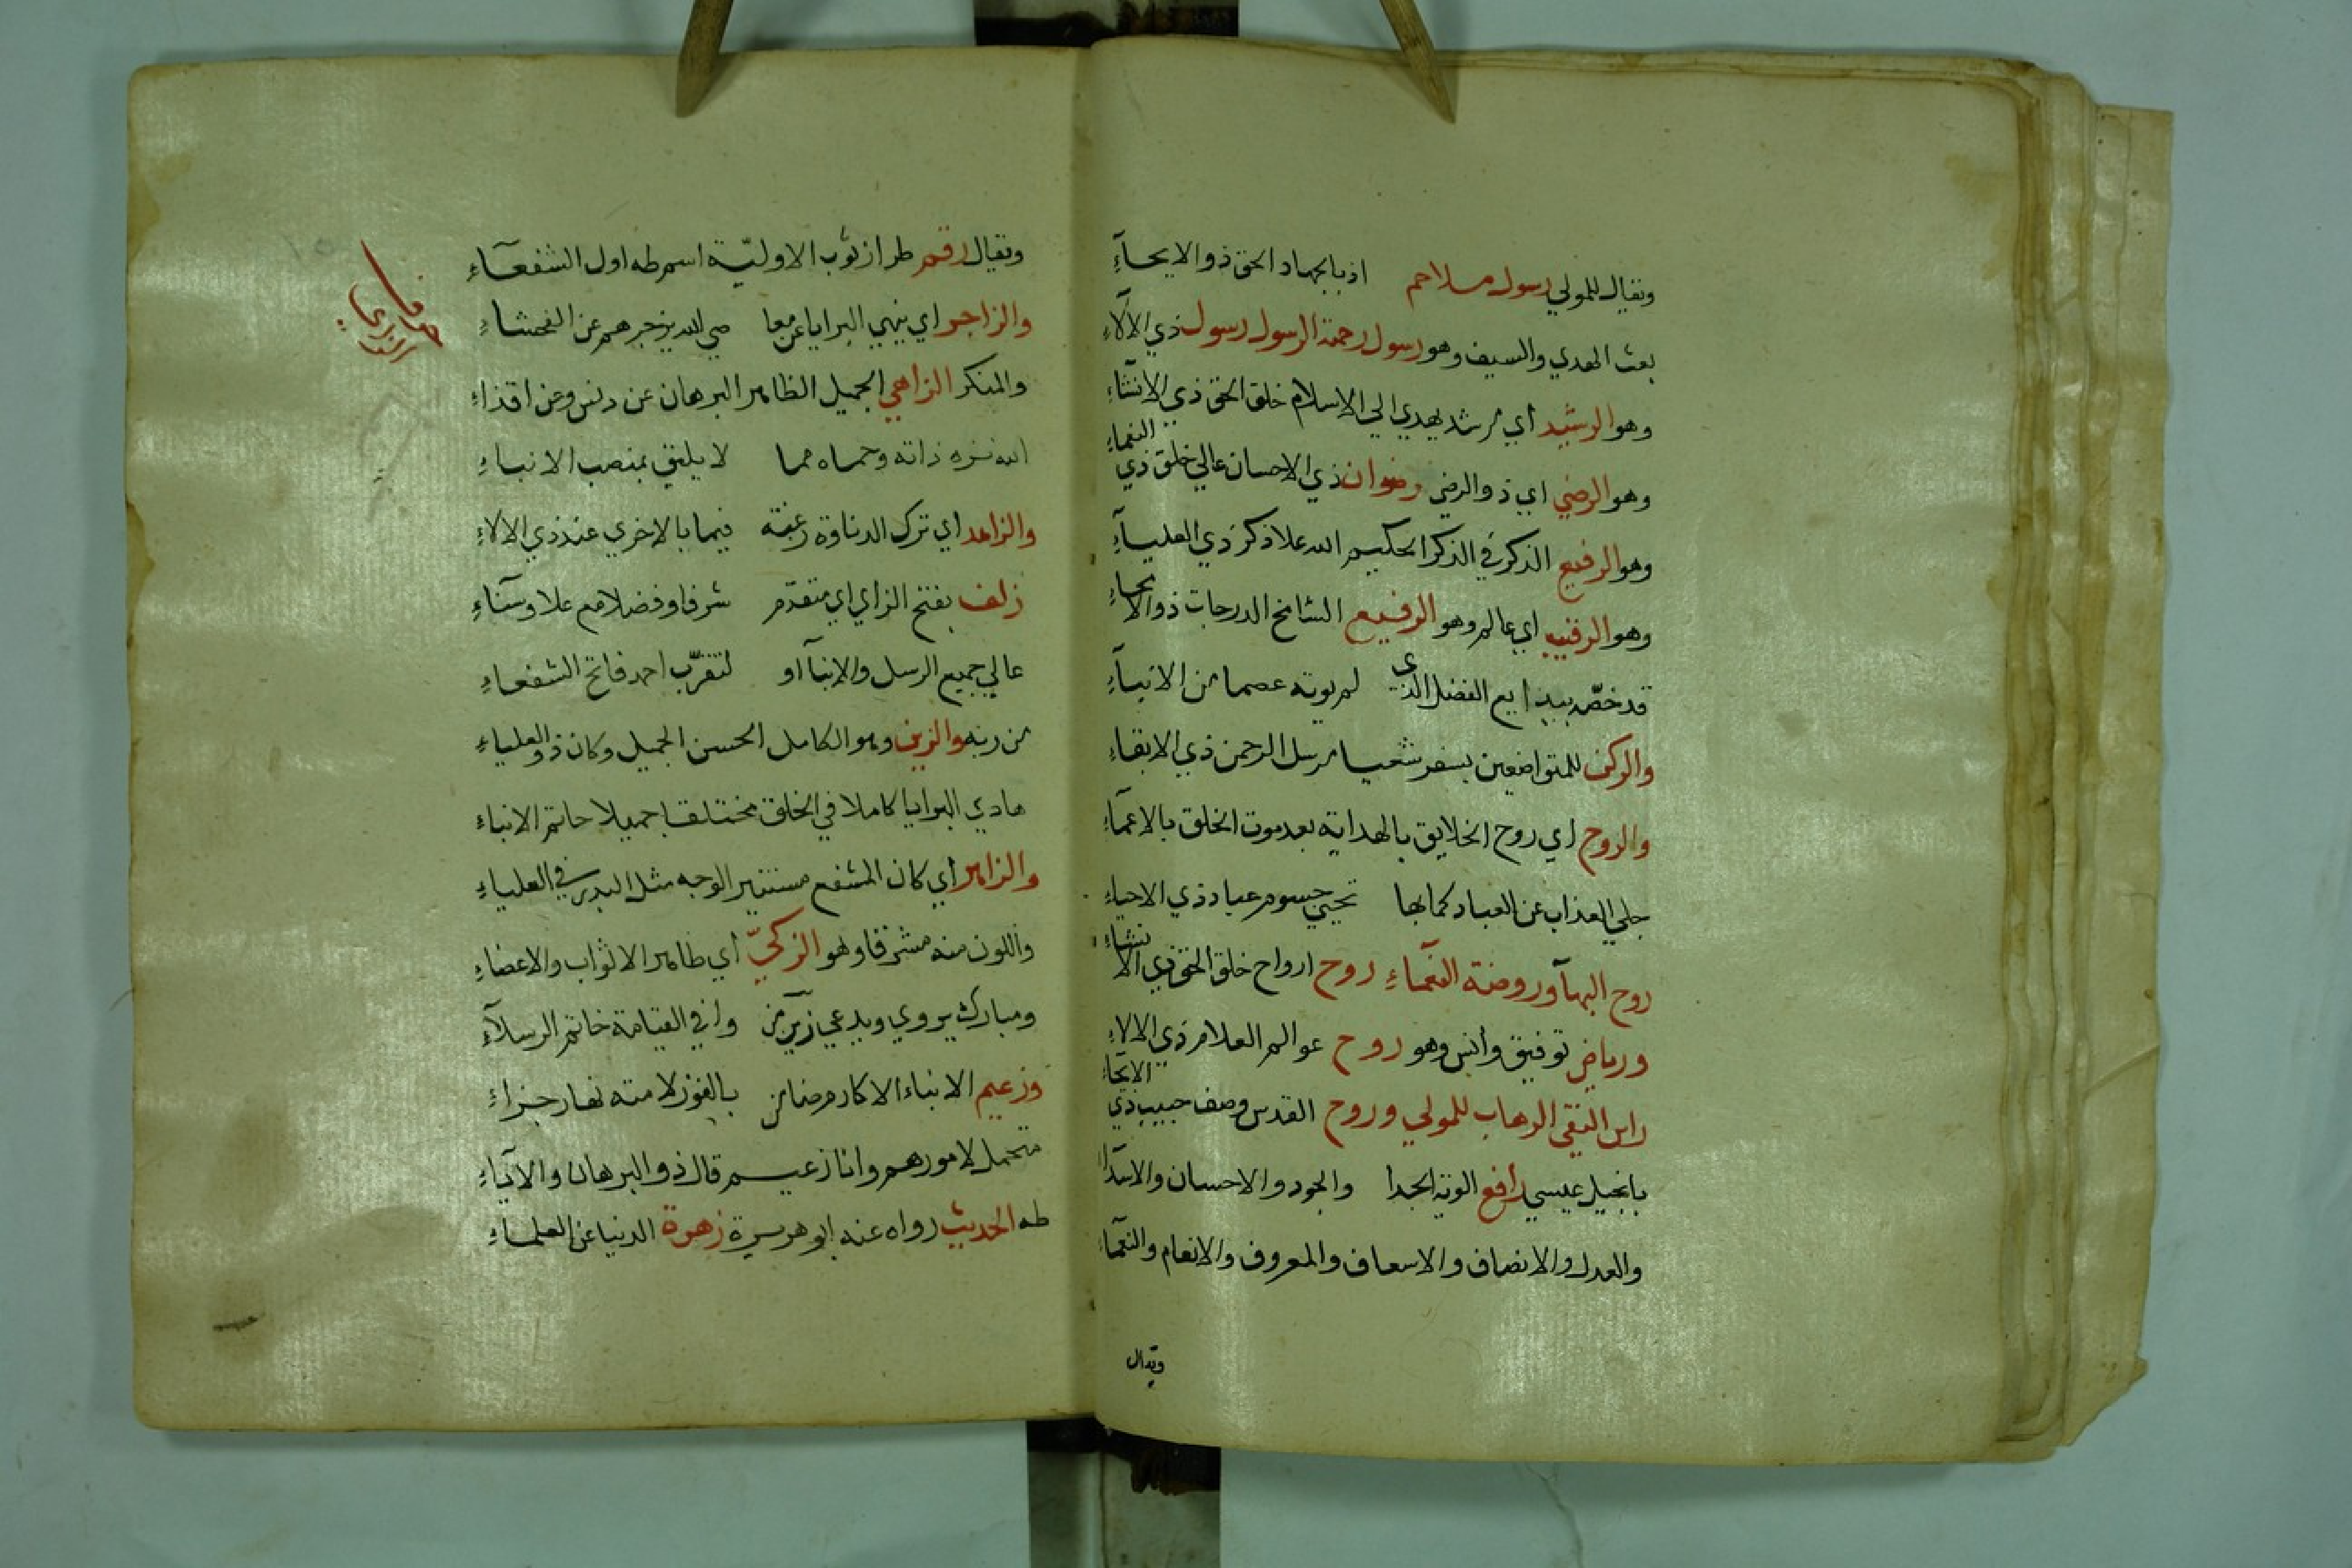 ويقال للمولي رسول ملاحم اذ بالجهاد الحق ذو الايحآءِ
بعث الهدي والسيف وهو رسول رحمة الرسول رسول ذي الآلاءِ
وهو الرشيد أي مرشد يهدي الي الاسلام خلق الحق ذي الانشاءِ
وهو الرضي اي ذو الرضي رضوان ذي الاحسان عالي خلق ذي النعماءِ
وهو الرفيع الذكر في الذكر الحكيم الله علا ذكر ذي العليآءِ
وهو الرفيه اي عالم وهو الرفيع الشامخ الدرجات ذو الايحاءِ
قد خصّه ببدايع الفضل الذي لم يوته عصما من الانبيآءِ
والركن للمتواضعين بسفر شعيا مرسل الرحمن ذي الابقاءِ
والروح اي روح الخلايق بالهداية بعد موت الخلق بالاعمآءِ
جلي العذاب عن العباد كما بها تحيي جسوم عباد ذي الاحياءِ
روح البهآ وروضة النعمآءِ روح ارواح خلق الحق ذي الانشاءِ
ورياض توفيق وانس وهو روح عوالم العلام ذي الالاءِ
راس التقي الرهاب للمولي وروح القدس وصف حبيب ذي الايحآءِ
بانجيل عيسي رافع الوية الجدا والجود والاحسان والاسدا
والعدل والانصاف والاسعاف والمعروف والانعام والنعمآءِ
ويقال
ويقال رقم طراز ثوب الاوليّة اسم طه اول الشفعآءِ
والزاجر اي ينهي البرايا عن معا صي الله يزجرهم عن الفحشاءِ
والمنكر الزاهي الجميل الظاهر البرهان عن دنس وعن اقذاءِ
الله نزه ذاته وحماه مما لا يليق بمنصب الانبياءِ
والزاهد اي ترك الدناوة رغبة فيما بالاخري عند ذي الالاءِ
زلف بفتح الزاي اي متقدّم شرفا وفضلا مع علا وسنآءِ
عالي جميع الرسل والانبآ او لتقرّب احمد فاتح الشفعاءِ
من ربه والزين وهو الكامل الحسن الجميل وكان ذو العلياءِ
هادي البرايا كاملا في الخلق مختلقا جميلا خاتم الانباءِ
والزاهر أي كان المشفع مستنير الوجه مثل البدر في العلياءِ
واللون منه مشرقا وهو الزكيّ أي طاهر الاثواب والاعضاءِ
ومبارك يروي ويدعي زين من وافي القيامة خاتم الرسلآءِ
وزعيم الانباء الاكارم ضامن بالفوز لامته نهار جزاءِ
متحمل لامورهم وانا زعيم قال ذو البرهان والآيآءِ
طه الحديث رواه عنه ابو هريرة زهرة الدنيا عن العلماءِ